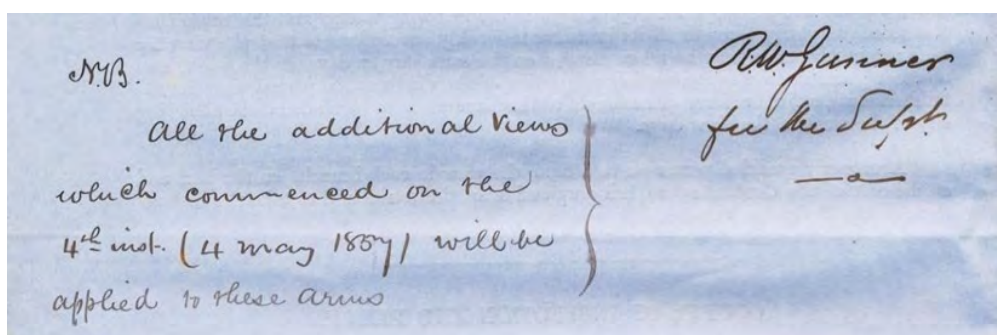 N.B.
All the additional Views
which commenced on the
4th inst. (4 may 1857) will be
applied to these arms
R.W. Gunner
for the Supt.